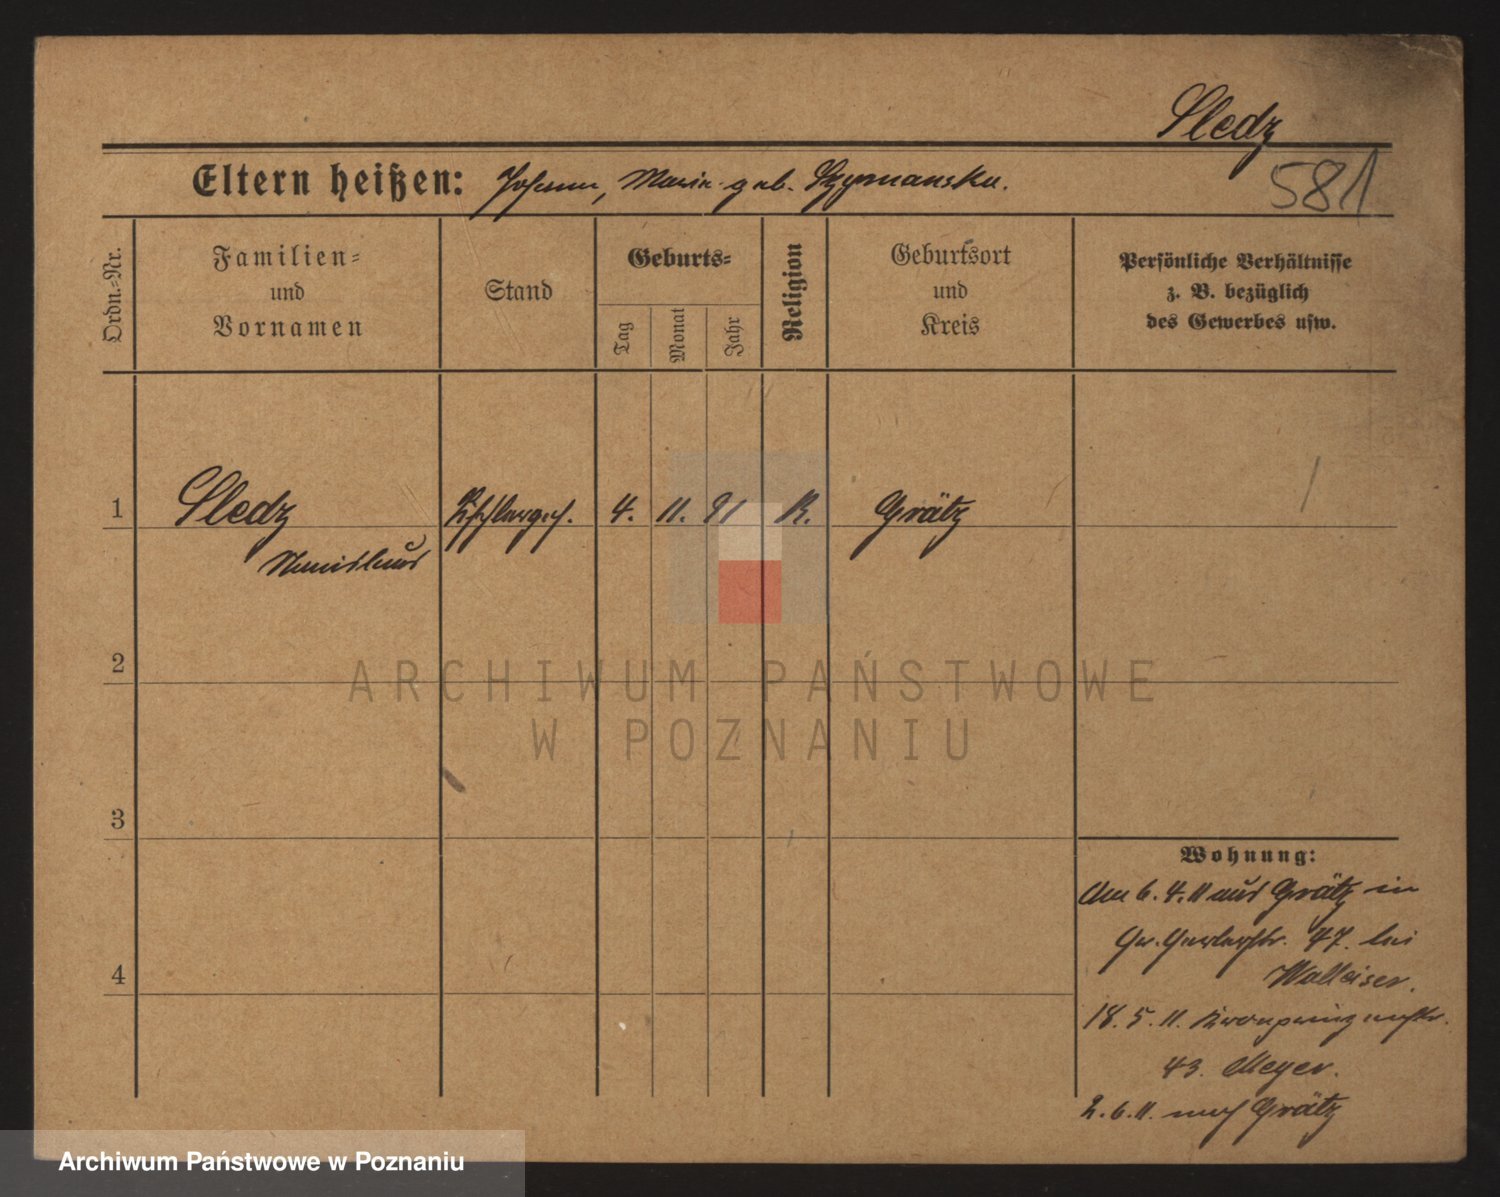 Sledz
Eltern heißen: Johann, Maria geb. Szymanska.
581
Ordn.-Nr.
Familien-
und
Vornamen
Stand
Geburts-
Tag
Monat
Jahr
Religion
Geburtsort
und
Kreis
Persönliche Verhältnisse
z. B. bezüglich
des Gewerbes usw.
1
Sledz
Stanislaus
Tischlerges.
4.
11.
91
K.
Grätz
2
3
4
Wohnung:
Am 6.4.11 aus Grätz in
Gr. Gerberstr. 47. bei
Walleiser.
18.5.11. Kronprinzenstr.
43. Meyer.
2.6.11. nach Grätz
ARCHIWUM PAŃSTWOWE
W POZNANIU
Archiwum Państwowe w Poznaniu